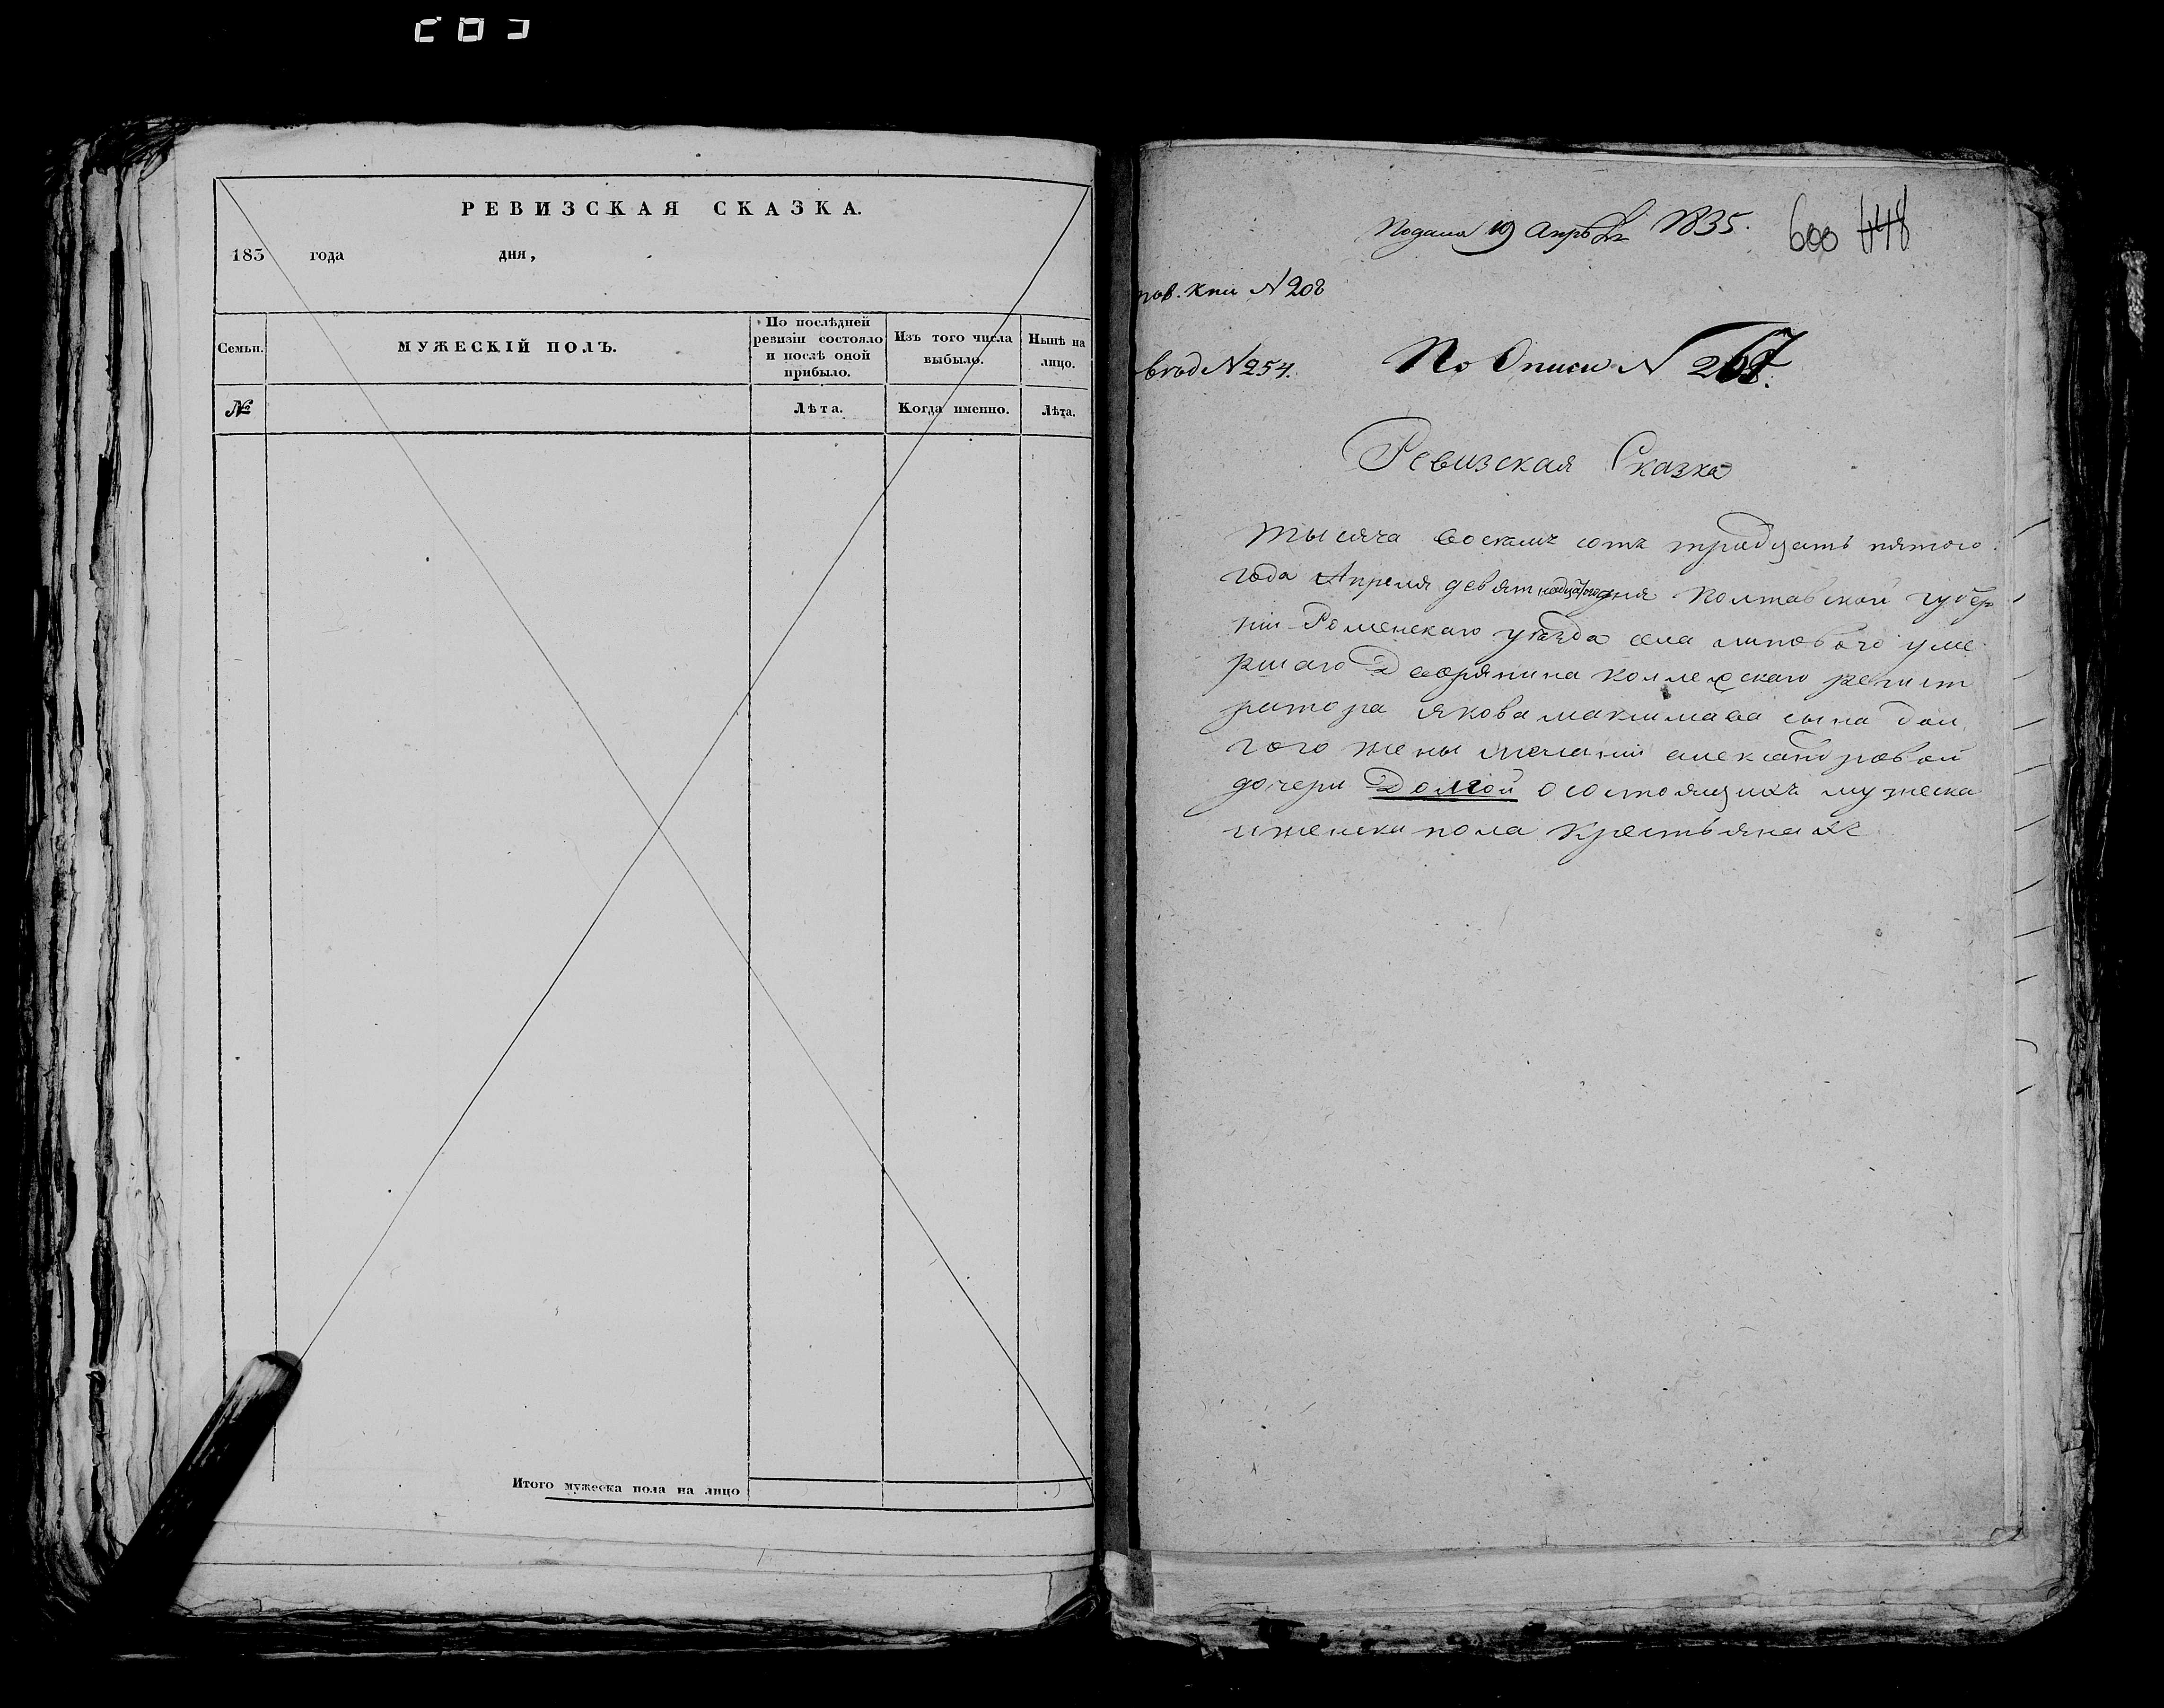 РЕВИЗСКАЯ СКАЗКА.
183 года дня,
Семьи.
МУЖЕСКІЙ ПОЛЪ.
По послѣдней
ревизіи состояло
и послѣ оной
прибыло.
Изъ того числа
выбыло.
Нынѣ на
лицо.
№
Лѣта.
Когда именно.
Лѣта.
Итого мужеска пола на лицо
Подана 19 Апрѣля 1835.
600 648
пов. кни N 208
N 254.
По Описи N
Ревизская Сказка
тысяча восемъ сотъ традцать пятого
года Апреля девятнадцатого дня Полтавской губер
ніи Роменскаго уѣзда села липового уме
ршаго Дворянина коллежскаго регист
ратора якова максимова сына дол
гого жены меланіи александровой
дочери Долгой о состоящихъ мужеска
и женска пола крестьянахъ